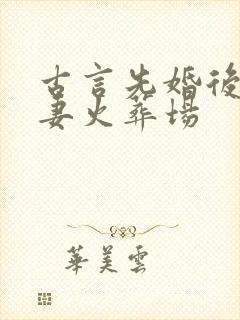 古言先婚後
妻火葬場
華美雲